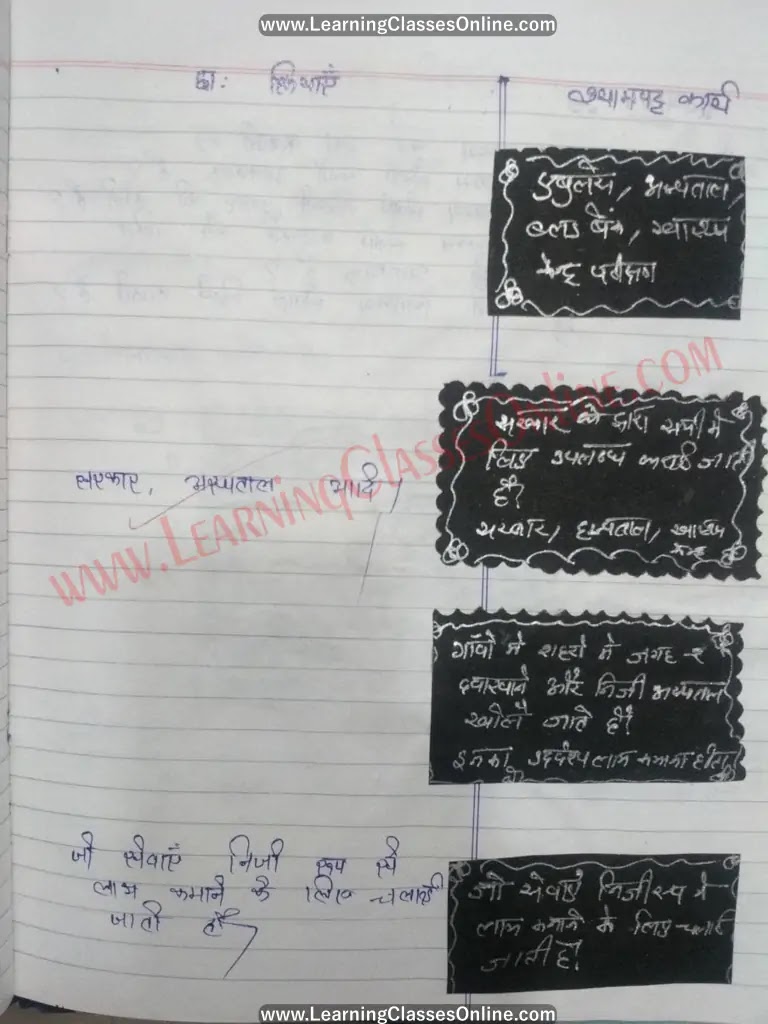 www.LearningClassesOnline.com
छा: क्रियाएँ
श्यामपट्ट कार्य
एंबुलेंस, अस्पताल,
ब्लड बैंक, स्वास्थ्य
परीक्षण
सरकार के द्वारा सभी में
लिए उपलब्ध कराई जाती
है?
सरकार, अस्पताल, स्वास्थ्य
केन्द्र
सरकार, अस्पताल आदि।
www.LearningClassesOnline.com
गाँवों में शहरों में जगह-२
दवाखाने और निजी अस्पताल
खोले जाते है।
इनका उद्देश्य लाभ कमाना होता
जो सेवाएँ निजी रूप से
लाभ कमाने के लिए चलाई
जाती हो
जो सेवाएं निजी रूप में
लाभ कमाने के लिए चलाई
जाती है।
www.LearningClassesOnline.com